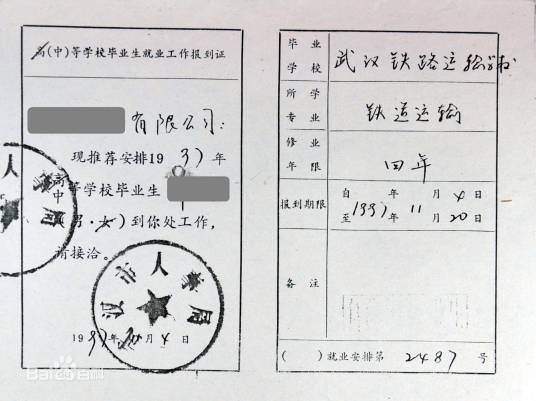 高(中)等学校毕业生就业工作报到证
有限公司:
现推荐安排1997年
高
中
等学校毕业生
(男·女)到你处工作,
请接洽。
汉市人事局
1997年 月4日
Baidu百科
毕业
学校
武汉铁路运输学校
所学
专业
铁道运输
修业
年限
四年
报到期限
自 年 月4日
至1997年11月20日
备注
( )就业安排第2487号